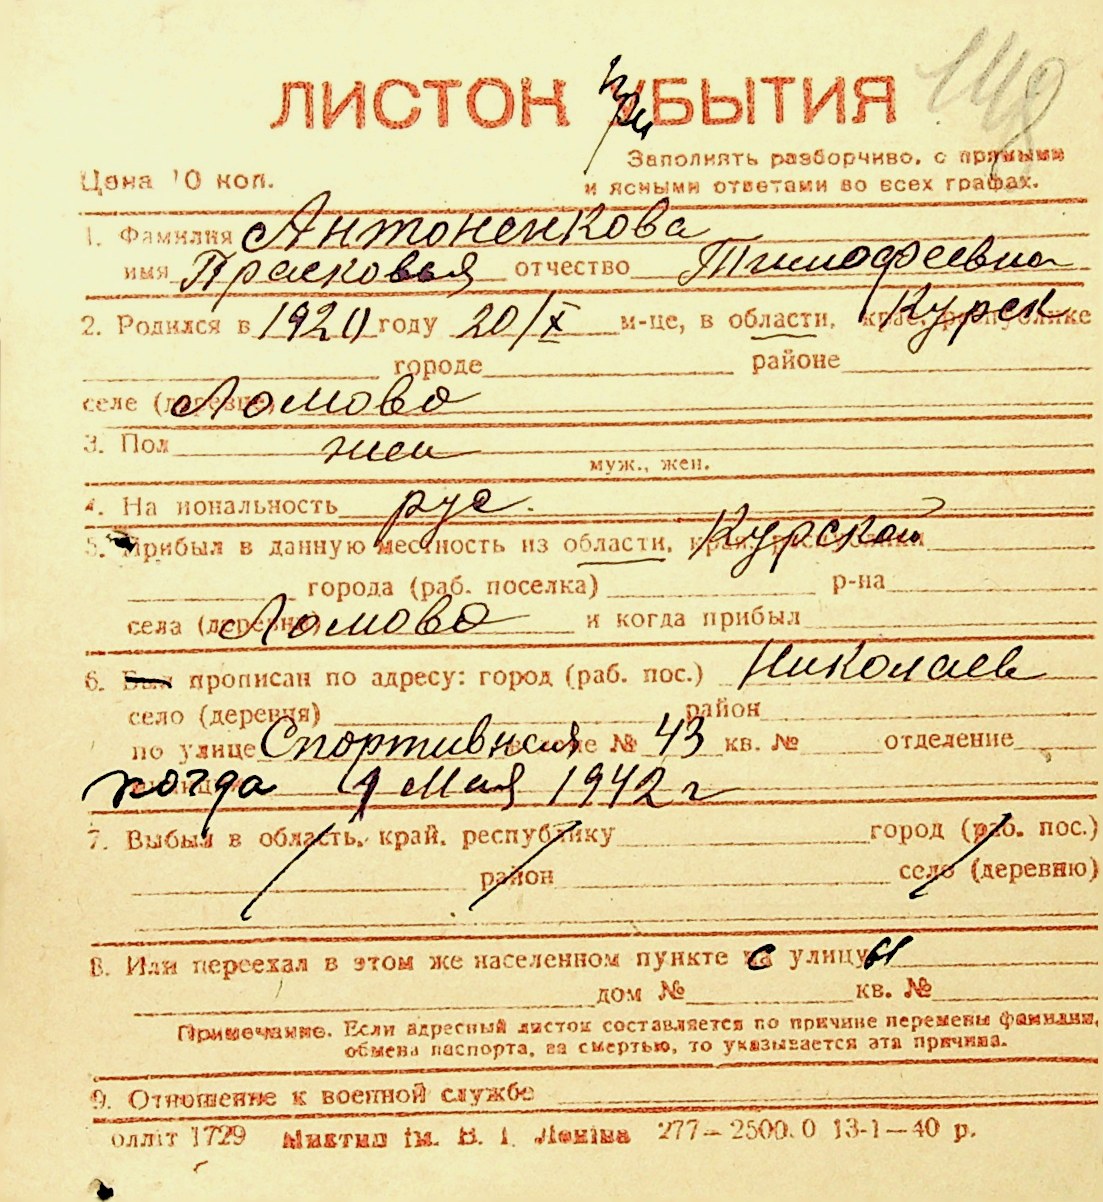 ЛИСТОК ПРИБЫТИЯ
Цена 10 коп.
Заполнять разборчиво, с прямыми
и ясными ответами во всех графах.
1. Фамилия Антоненкова
имя Прасковья отчество Тимофеевна
2. Родился в 1920 году 20/X м-це, в области, крае, республике Курск
городе районе
селе (деревце) Ломово
3. Пол жен
муж., жен.
4. На иональность рус.
5. Прибыл в данную местность из области, края, республики Курской
города (раб. поселка) р-на
села (деревни) Ломово и когда прибыл
6. Был прописан по адресу: город (раб. пос.) Николаев
село (деревня) район
по улице Спортивная № 43 кв. № отделение
когда 1 Мая 1942 г
7. Выбыл в область, край, республику город (раб. пос.)
район село (деревню)
8. Или переехал в этом же населенном пункте с улицы
дом № кв. №
Примечание. Если адресный листок составляется по причине перемены фамилии,
обмена паспорта, за смертью, то указывается эта причина.
9. Отношение к военной службе
оллiт 1729 Миктип iм. В. I. Ленiна 277—2500.0 13-1—40 р.